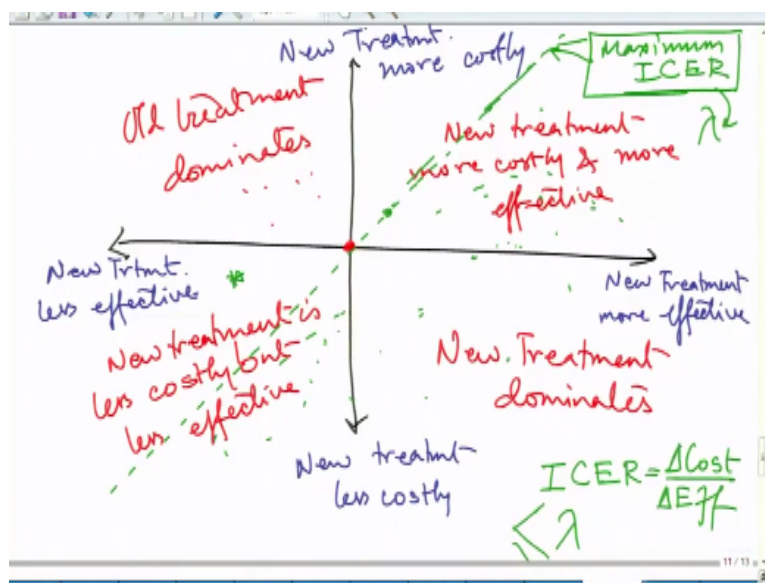 New Treatmt.
more costly
Maximum
ICER
λ
Old treatment
dominates
New treatment
more costly & more
effective
New Trtmt.
less effective
New Treatment
more effective
New treatment is
less costly but
less effective
New Treatment
dominates
New treatmt
less costly
ICER = ΔCost
ΔEff
≤ λ
11 / 11